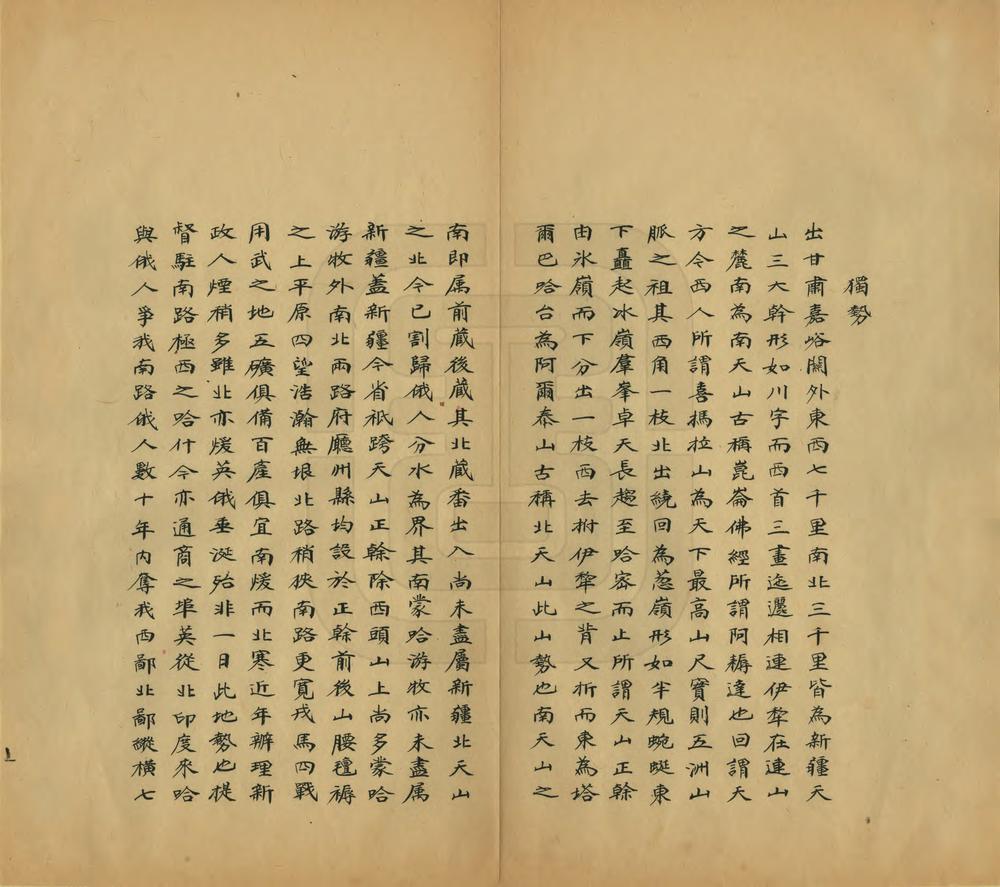 獨勢
出甘肅嘉峪關外東西七千里南北三千里皆為新疆天
山三大幹形如川字而西首三畫迤邐相連伊犂在連山
之麓南為南天山古稱崑崙佛經所謂阿耨達也回謂天
方今西人所謂喜撾拉山為天下最高山尺實則五洲山
脈之祖其西角一枝北出繞回為蔥嶺形如半規蜿蜒東
下矗起冰嶺羣峯卓天長趨至哈密而止所謂天山正幹
由氷嶺而下分出一枝西去拊伊犂之背又折而東為塔
爾巴哈台為阿爾泰山古稱北天山此山勢也南天山之
南即属前蔵後蔵其北蔵番出入尚未盡屬新疆北天山
之北今已割歸俄人分水為界其南蒙哈游牧亦未盡属
新疆蓋新疆今省衹跨天山正榦除西頭山上尚多蒙哈
游牧外南北兩路府廳州縣均設於正榦前後山腰氊褥
之上平原四望浩瀚無垠北路稍狹南路更寬戎馬四戰
用武之地五礦俱備百產俱宜南煖而北寒近年辦理新
政人煙稍多雖北亦煖英俄垂涎殆非一日此地勢也提
督駐南路極西之哈什今亦通商之埠英從北印度來哈
與俄人爭我南路俄人數十年内奪我西鄙北鄙縱橫七